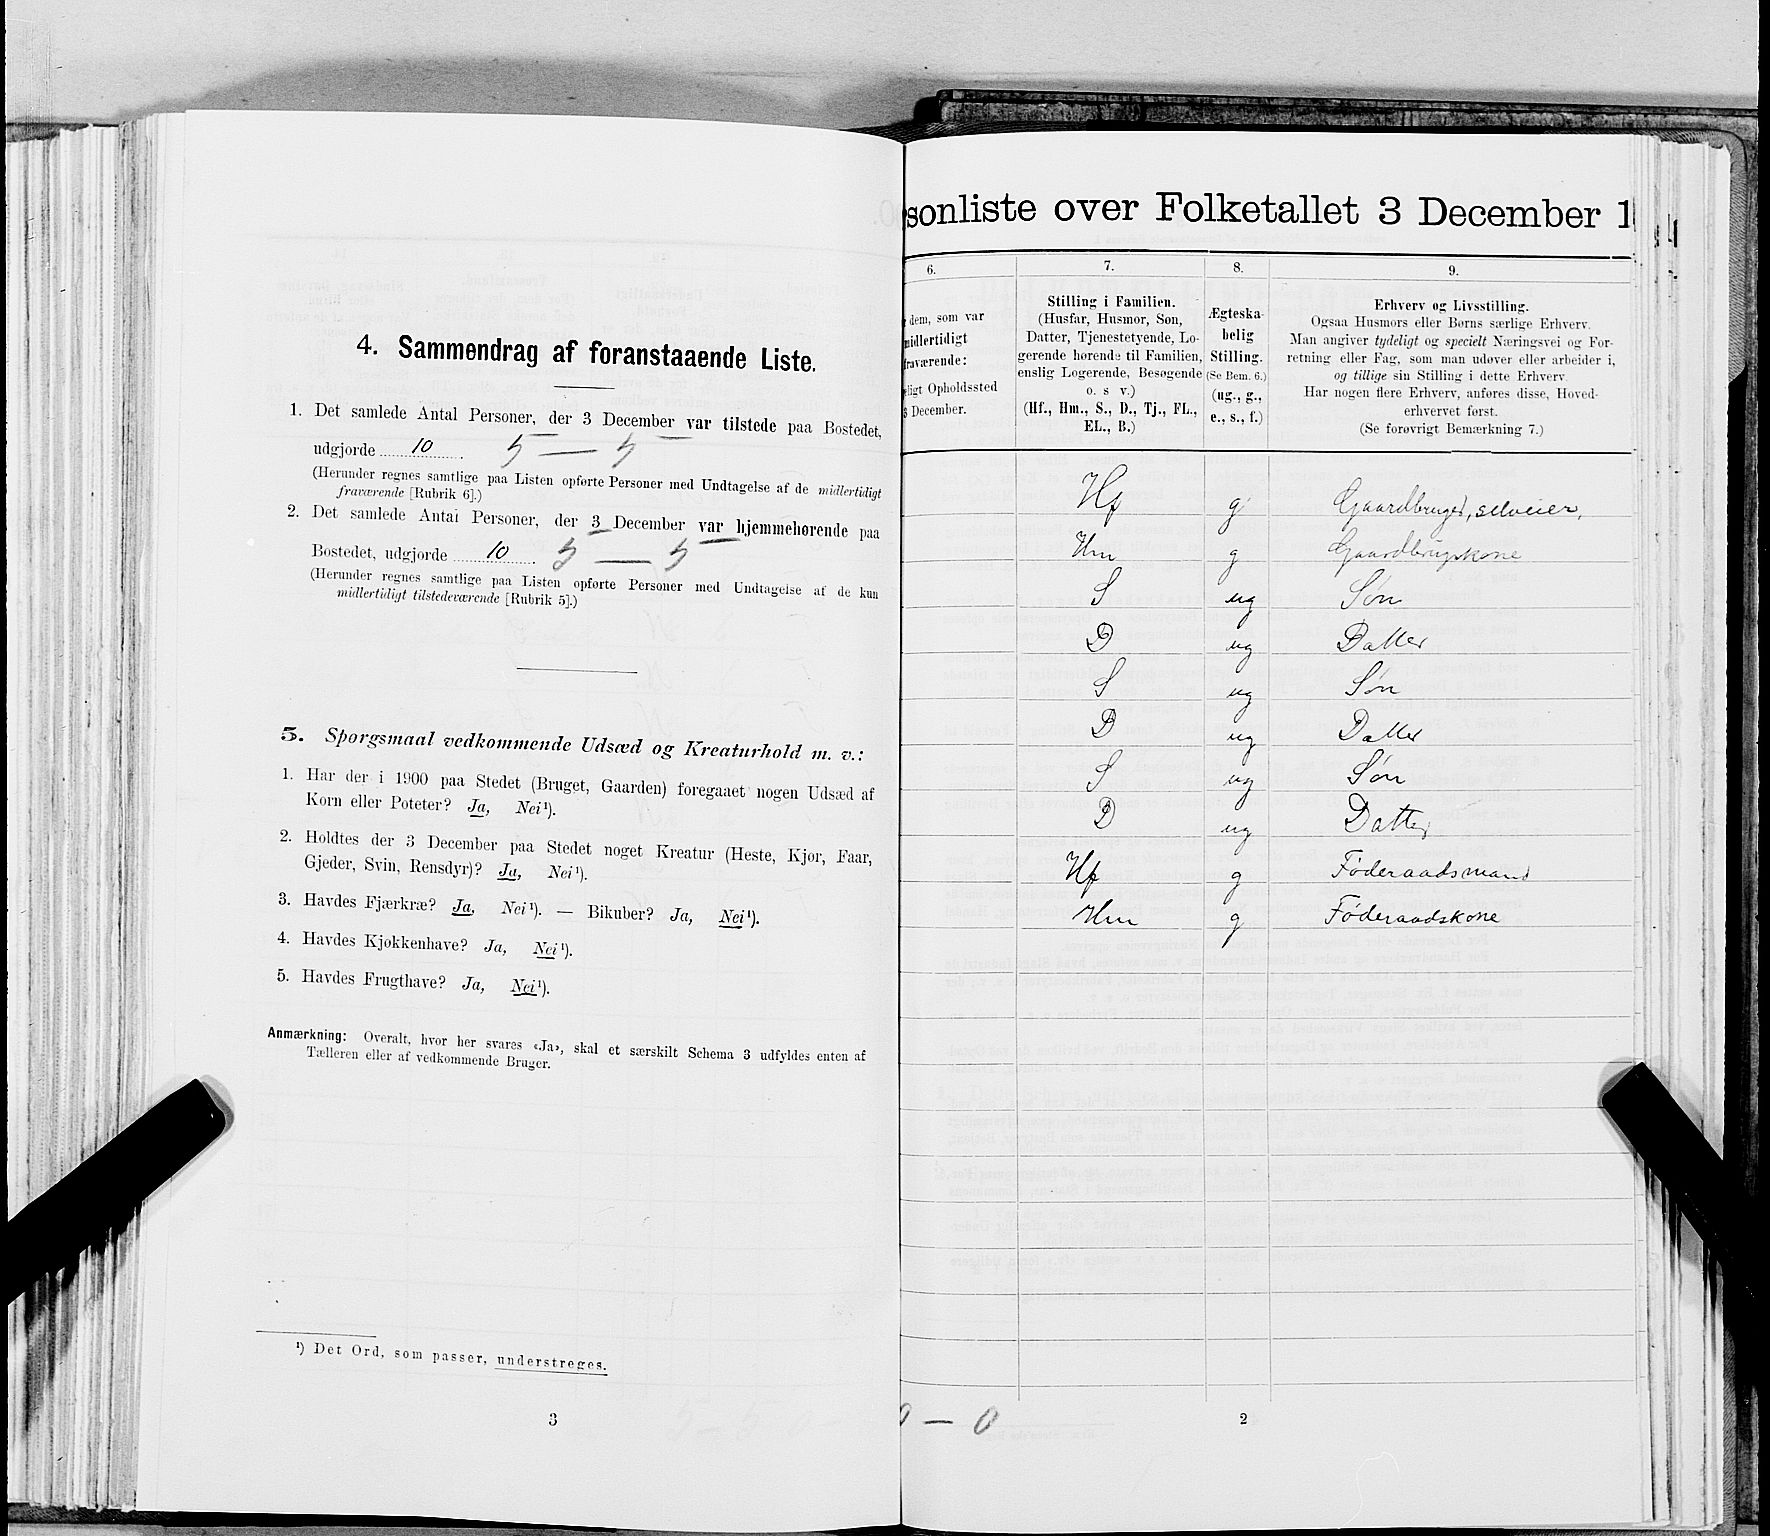 4. Sammendrag af foranstaaende Liste.
1. Det samlede Antal Personer, der 3 December var tilstede paa Bostedet,
udgjorde 10. 5 — 5
(Herunder regnes samtlige paa Listen opførte Personer med Undtagelse af de midlertidigt
fraværende [Rubrik 6].)
2. Det samlede Antal Personer, der 3 December var hjemmehørende paa
Bostedet, udgjorde 10. 5 — 5
(Herunder regnes samtlige paa Listen opførte Personer med Undtagelse af de kun
midlertidigt tilstedeværende [Rubrik 5].)
5. Spørgsmaal vedkommende Udsæd og Kreaturhold m. v.:
1. Har der i 1900 paa Stedet (Bruget, Gaarden) foregaaet nogen Udsæd af
Korn eller Poteter? Ja, Nei¹).
2. Holdtes der 3 December paa Stedet noget Kreatur (Heste, Kjør, Faar,
Gjeder, Svin, Rensdyr)? Ja, Nei¹).
3. Havdes Fjærkræ? Ja, Nei¹). — Bikuber? Ja, Nei¹).
4. Havdes Kjøkkenhave? Ja, Nei¹).
5. Havdes Frugthave? Ja, Nei¹).
Anmærkning: Overalt, hvor her svares «Ja», skal et særskilt Schema 3 udfyldes enten af
Tælleren eller af vedkommende Bruger.
¹) Det Ord, som passer, understreges.
3
sonliste over Folketallet 3 December 1
6. 7. 8. 9.
dem, som var
midlertidigt
fraværende:
ligt Opholdssted
3 December.
Stilling i Familien.
(Husfar, Husmor, Søn,
Datter, Tjenestetyende, Lo-
gerende hørende til Familien,
enslig Logerende, Besøgende
o. s v.)
(Hf., Hm., S., D., Tj., FL.,
EL., B.)
Ægteska-
belig
Stilling.
(Se Bem. 6.)
(ug., g.,
e., s., f.)
Erhverv og Livsstilling.
Ogsaa Husmors eller Børns særlige Erhverv.
Man angiver tydeligt og specielt Næringsvei og For-
retning eller Fag, som man udøver eller arbeider i,
og tillige sin Stilling i dette Erhverv
Har nogen flere Erhverv, anføres disse, Hoved-
erhvervet først.
(Se forøvrigt Bemærkning 7.)
Hf g Gaardbruger, selveier,
Hm g Gaardbrugskone
S ug Søn
D ug Datter
S ug Søn
D ug Datter
S ug Søn
D ug Datter
Hf g Føderaadsmand
Hm g Føderaadskone
5 – 5 0 – 0
2